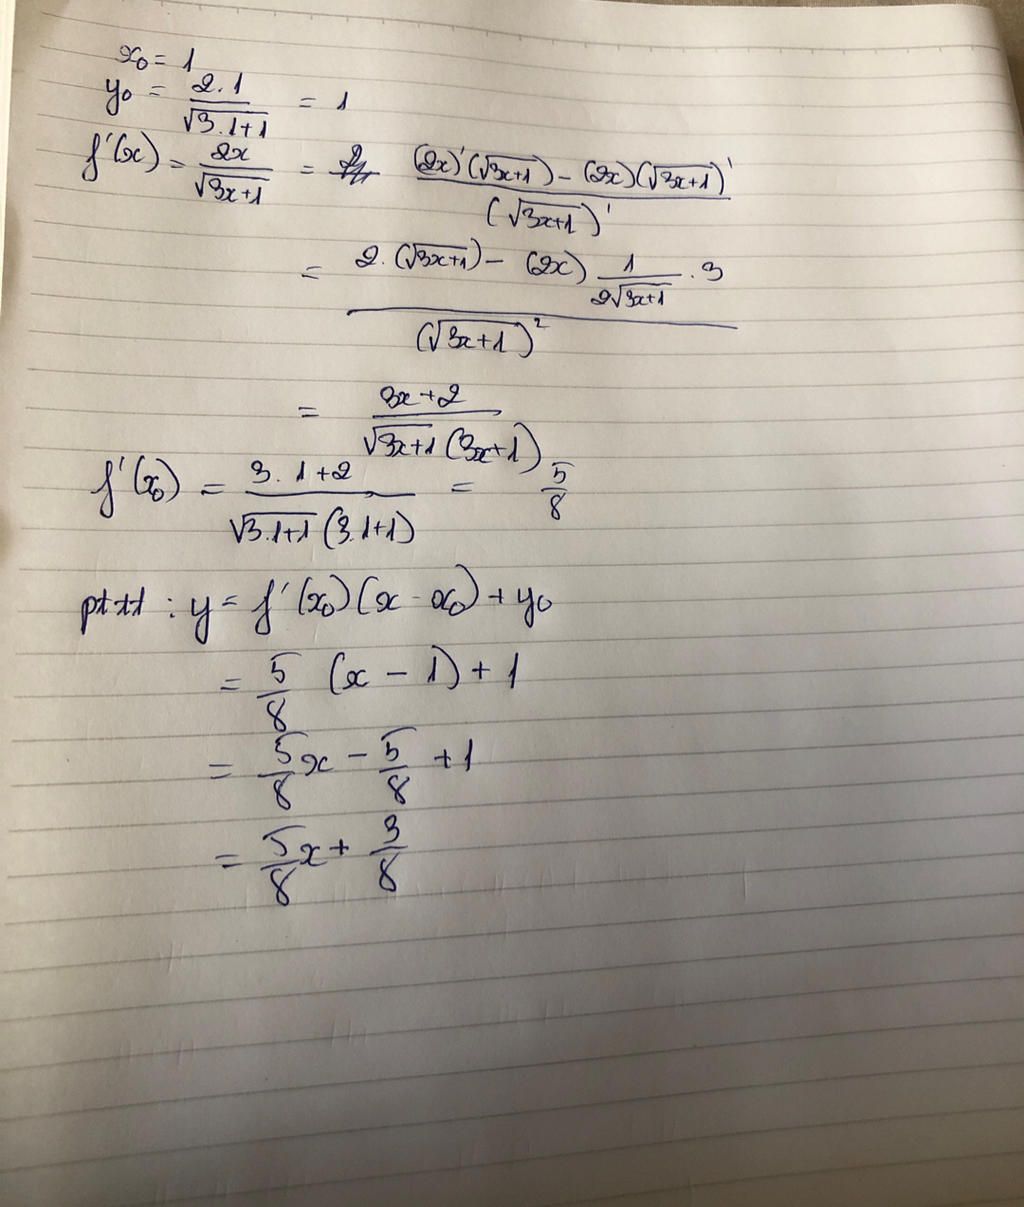 x₀ = 1
y₀ = \frac{2.1}{\sqrt{3.1+1}} = 1
f'(x) = \frac{2x}{\sqrt{3x+1}} = \frac{(2x)'(\sqrt{3x+1}) - (2x)(\sqrt{3x+1})'}{(\sqrt{3x+1})'}
= \frac{2.(\sqrt{3x+1}) - (2x)\frac{1}{2\sqrt{3x+1}}.3}{(\sqrt{3x+1})^2}
= \frac{3x+2}{\sqrt{3x+1}(3x+1)}
f'(x₀) = \frac{3.1+2}{\sqrt{3.1+1}(3.1+1)} = \frac{5}{8}
pttt : y = f'(x₀)(x - x₀) + y₀
= \frac{5}{8} (x - 1) + 1
= \frac{5}{8}x - \frac{5}{8} + 1
= \frac{5}{8}x + \frac{3}{8}